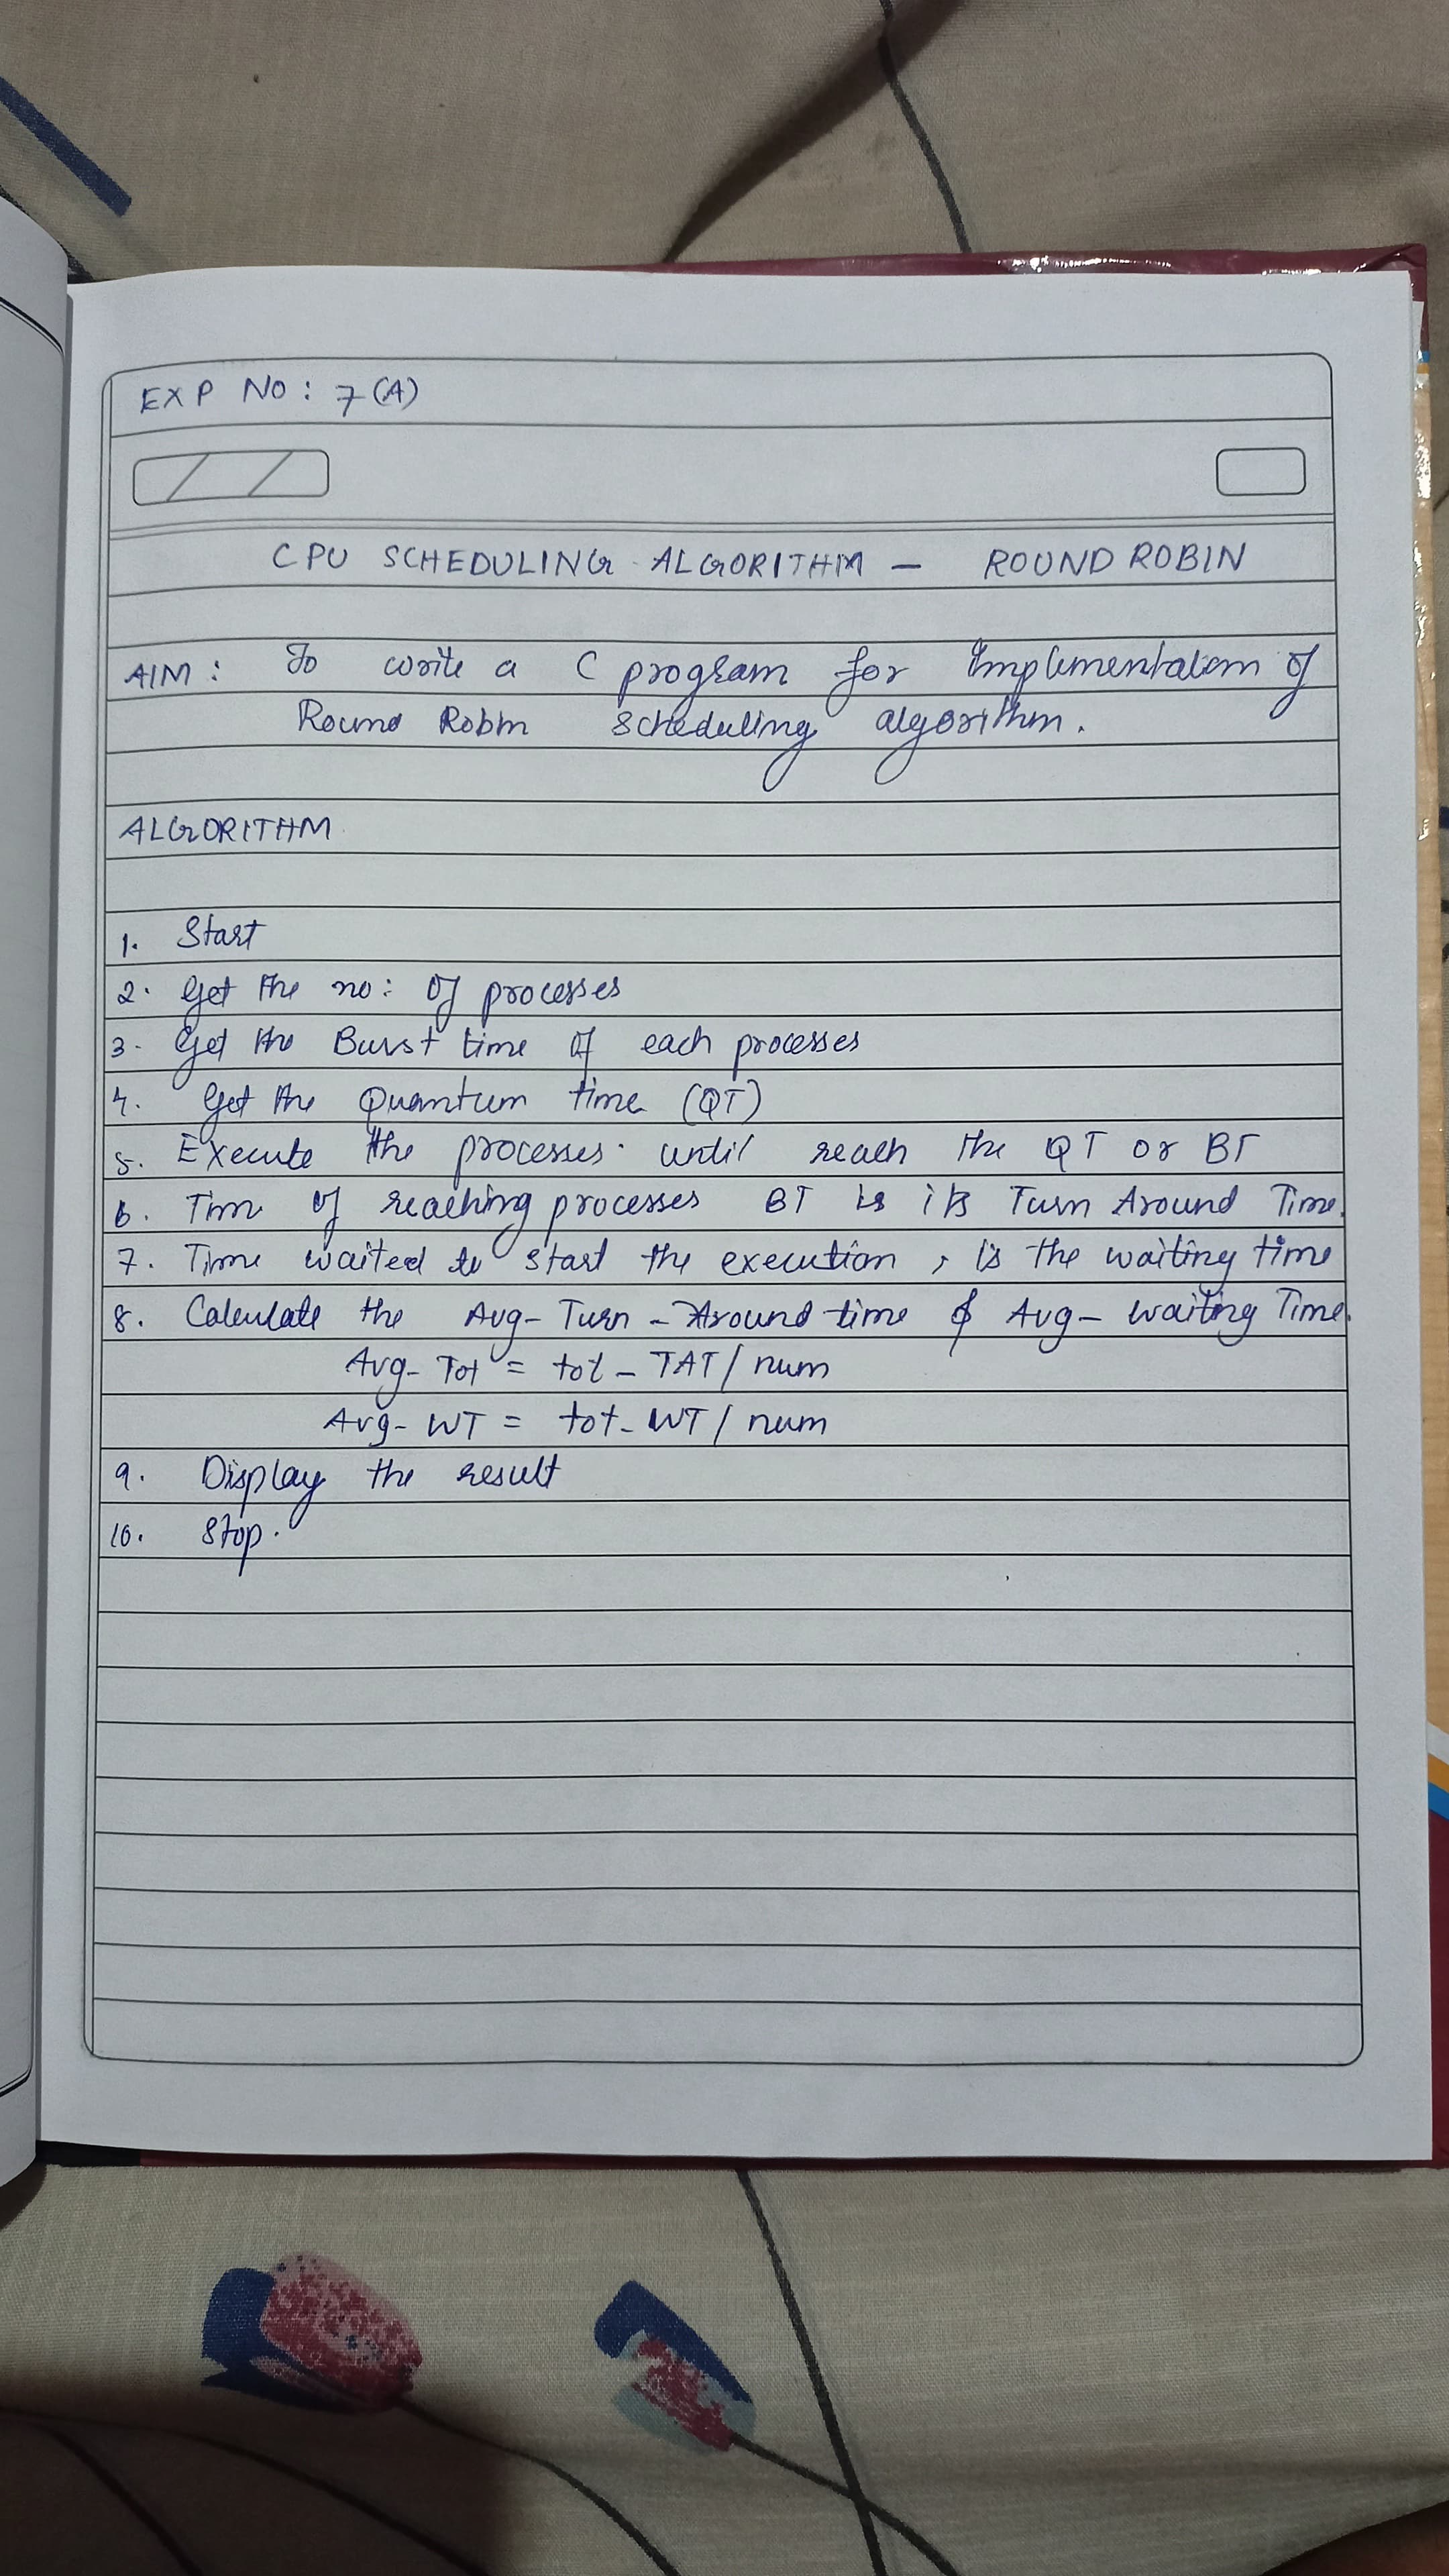 EXP NO: 7(A)
CPU SCHEDULING ALGORITHM - ROUND ROBIN
AIM: To write a C program for Implementation of
Round Robin scheduling algorithm.
ALGORITHM
1. Start
2. Get the no: of processes
3. Get the Burst time of each processes
4. Get the Quantum time (QT)
5. Execute the processes until reach the QT or BT
6. Time of reaching processes BT is its Turn Around Time.
7. Time waited to start the execution, is the waiting time
8. Calculate the Avg-Turn-Around time & Avg-waiting Time.
Avg-Tot = tot-TAT/num
Avg-WT = tot-WT/num
9. Display the result
10. Stop.